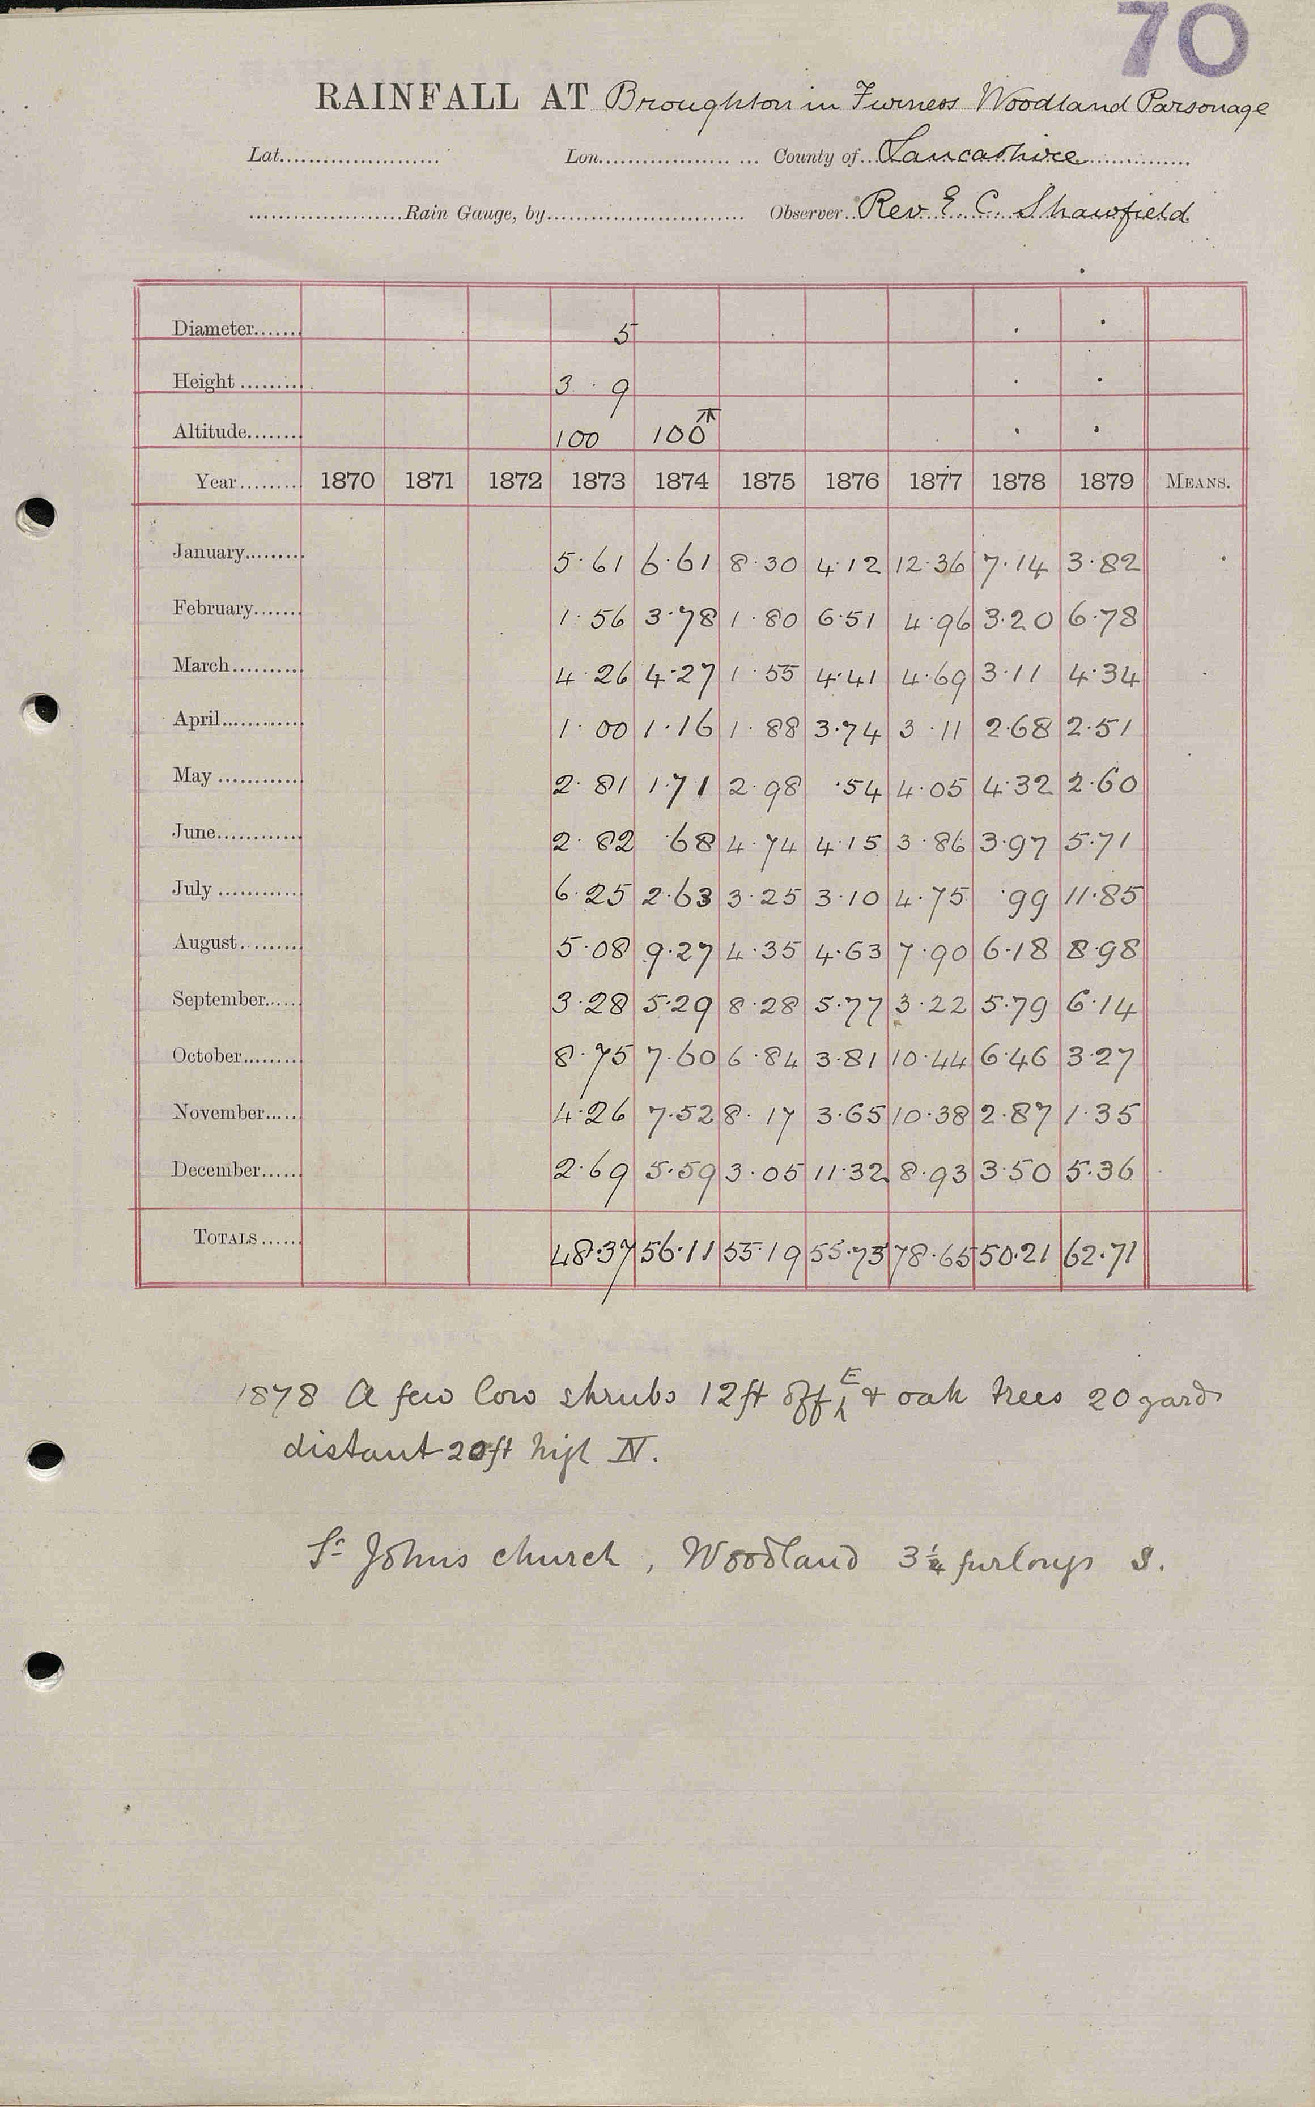 70
RAINFALL AT Broughton in Furness Woodland Parsonage
Lat...................... Lon.................. ... County of..Lancashire...............
.....................Rain Gauge, by........................... Observer..Rev. E. C. Shawfield
Diameter....... 5
Height ......... 3 · 9
Altitude........ 100 100
Year........ 1870 1871 1872 1873 1874 1875 1876 1877 1878 1879 MEANS.
January......... 5·61 6·61 8·30 4·12 12·36 7·14 3·82
February....... 1·56 3·78 1·80 6·51 4·96 3·20 6·78
March.......... 4·26 4·27 1·55 4·41 4·69 3·11 4·34
April............ 1·00 1·16 1·88 3·74 3·11 2·68 2·51
May ............ 2·81 1·71 2·98 ·54 4·05 4·32 2·60
June............ 2·82 ·68 4·74 4·15 3·86 3·97 5·71
July ............ 6·25 2·63 3·25 3·10 4·75 ·99 11·85
August......... 5·08 9·27 4·35 4·63 7·90 6·18 8·98
September...... 3·28 5·29 8·28 5·77 3·22 5·79 6·14
October......... 8·75 7·60 6·84 3·81 10·44 6·46 3·27
November...... 4·26 7·52 8·17 3·65 10·38 2·87 1·35
December...... 2·69 5·59 3·05 11·32 8·93 3·50 5·36
TOTALS ...... 48·37 56·11 55·19 55·75 78·65 50·21 62·71
1878 A few low shrubs 12ft off E & oak trees 20 yards
distant 20ft high N.
St Johns church, Woodland 3¼ furlongs S.